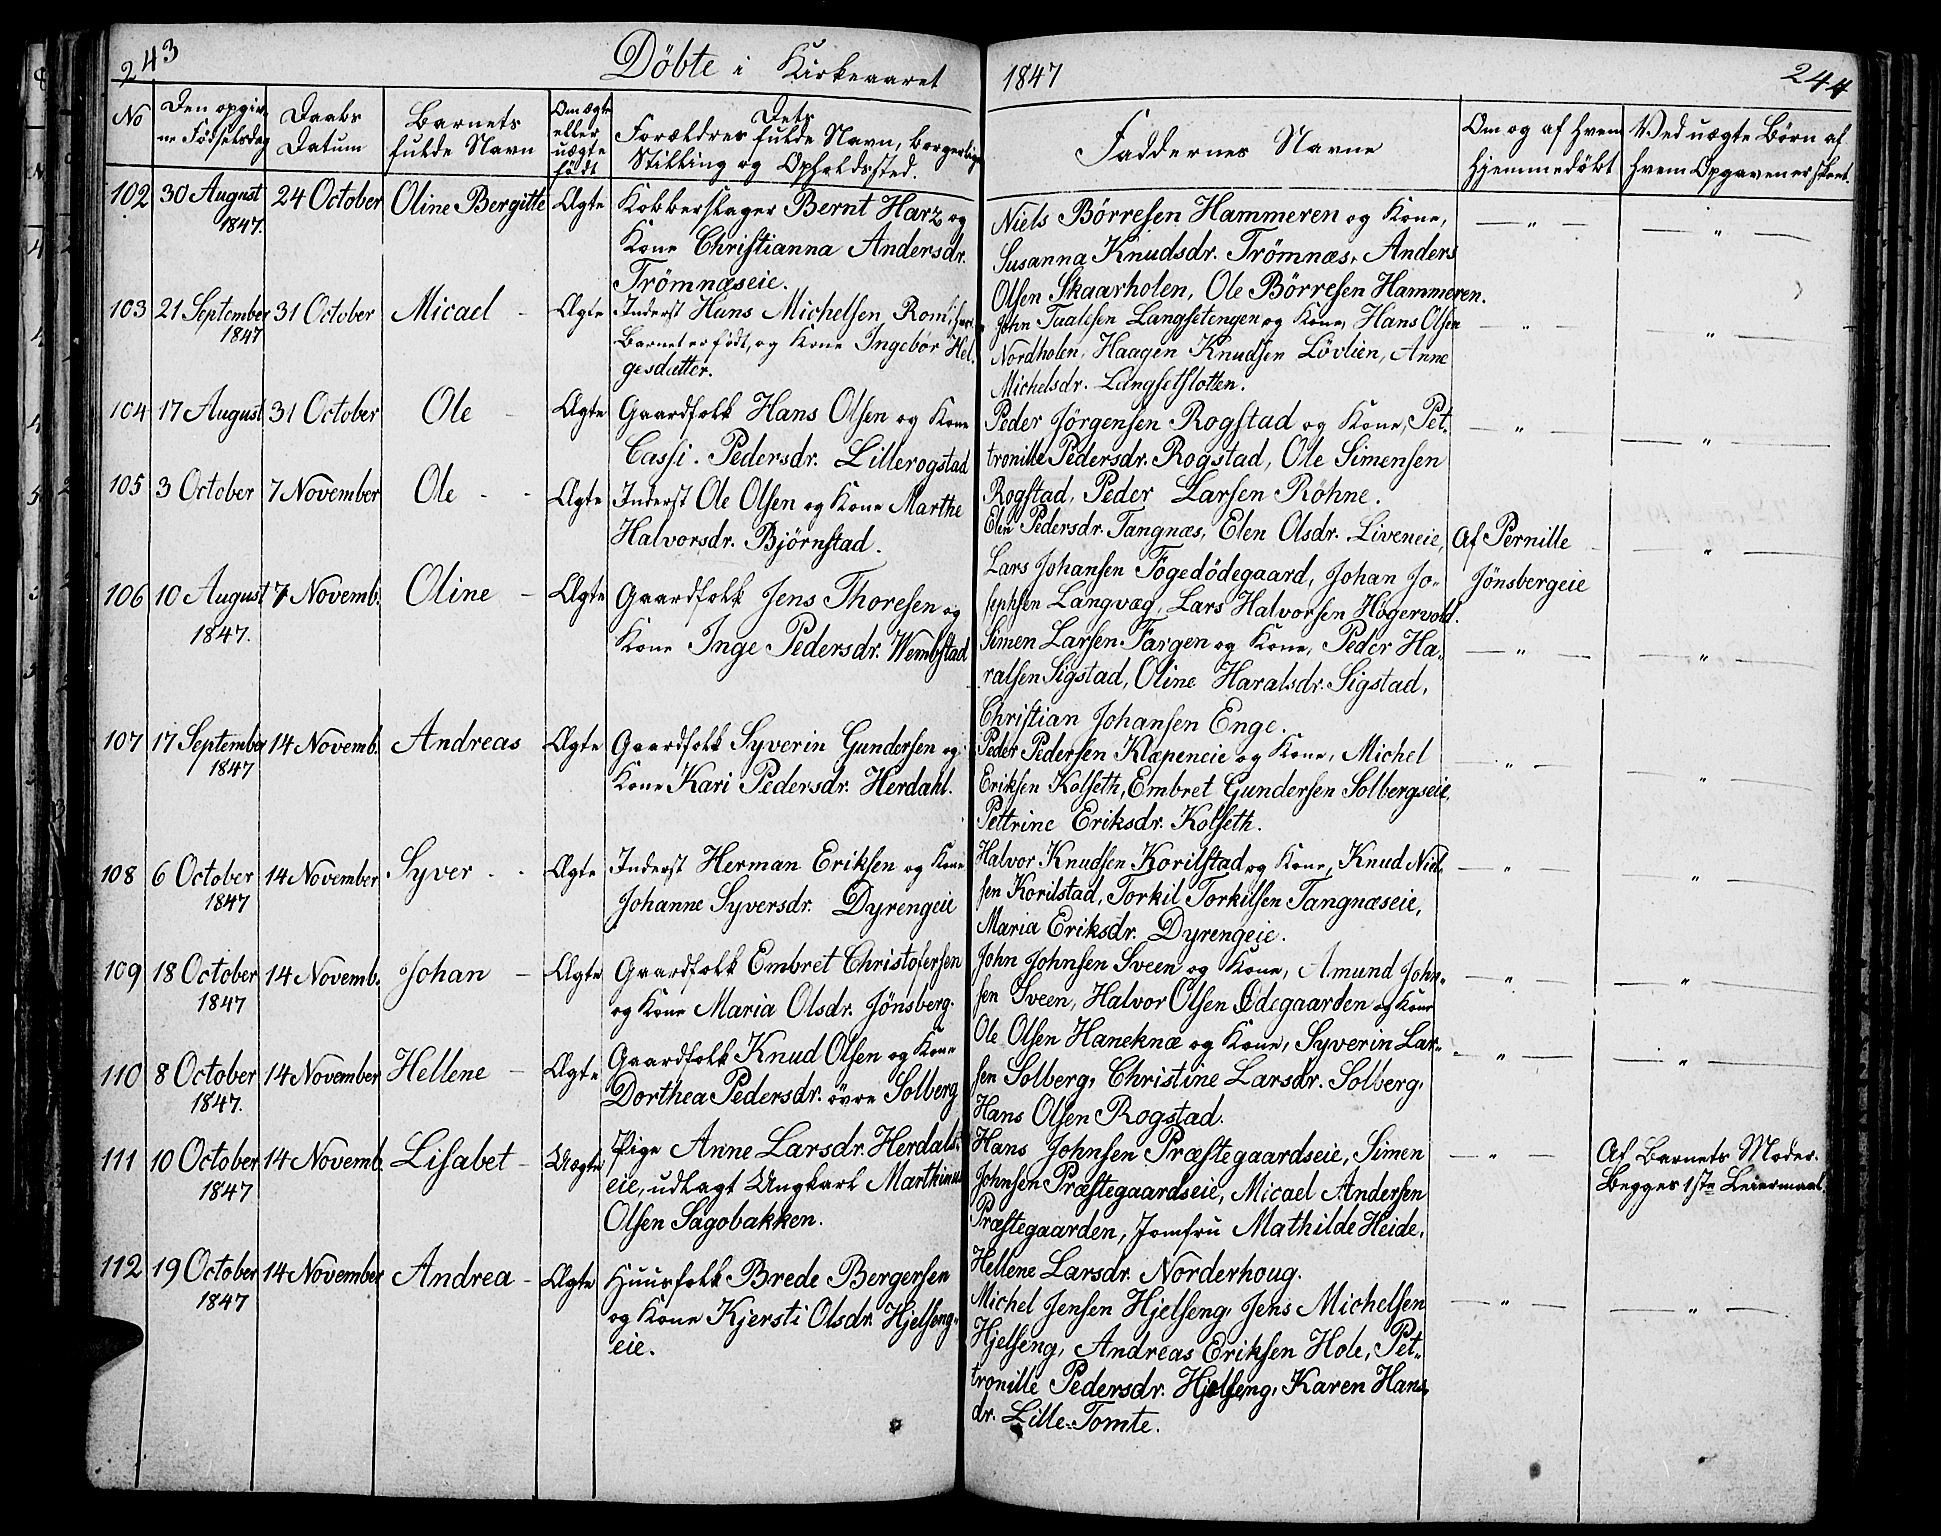 243
Döbte i Kirkeaaret
1847
244
No
Den opgiv-
ne Födselsdag
Daabs
Datum
Barnets
fulde Navn
Om ægte
eller
uægte
født
Dets
Forældres fulde Navn, borgerlige
Stilling og Opholdssted.
Faddernes Navne
Om og af hvem
hjemmedöbt
Ved uægte Börn af
hvem Opgaven er skeet.
102 30 August 24 October Oline Bergitte Ægte Kobberslager Bernt Harz og
1847.
Kone Christianna Andersdr.
Trömnæseie.
Niels Börresen Hammeren og Kone,
Susanna Knudsdr. Trömnæs, Anders
Olsen Skaarholen, Ole Börresen Hammeren.
103 21 September 31 October Micael - Ægte Inderst Hans Michelsen Rom,
1847
Barnet er födt, og Kone Ingebör Hel-
gesdatter.
John Langsetengen og Kone, Hans Olsen
Nordholen, Haagen Knudsen Lövlien, Anne
Michelsdr. Langsetslotten.
104 17 August 31 October Ole - Ægte Gaardfolk Hans Olsen og Kone
Cassi. Pedersdr. Lillerogstad
Peder Jörgensen Rogstad og Kone, Pet-
tronille Pedersdr. Rogstad, Ole Simensen
Rogstad, Peder Larsen Röhne.
105 3 October 7 November Ole - - Ægte Inderst Ole Olsen og Kone Marthe
Halvorsdr. Björnstad.
Elen Pedersdr. Tangnæs, Elen Olsdr. Liveneie,
Lars Johansen Fogedödegaard, Johan Jo-
sephsen Langvæg, Lars Halvorsen Högervold.
Af Pernille
Jönsbergeie
106 10 August 7 Novemb. Oline - Ægte Gaardfolk Jens Thoresen og
1847.
Kone Inge Pedersdr. Wembstad
Simen Larsen Fargen og Kone, Peder Ha-
ralsen Sigstad, Oline Haralsdr. Sigstad,
Christian Johansen Enge.
107 17 September 14 Novemb. Andreas Ægte Gaardfolk Syverin Gundersen og
1847
Kone Kari Pedersdr. Herdahl.
Peder Pedersen Klæpeneie og Kone, Michel
Eriksen Kolseth, Embret Gundersen Solbergseie,
Pettrine Eriksdr. Kolseth.
108 6 October 14 November Syver - - Ægte Inderst Herman Eriksen og Kone
1847
Johanne Syversdr. Dyrengeie
Halvor Knudsen Korilstad og Kone, Knud Niel-
sen Korilstad, Torkil Torkilsen Tangnæseie,
Maria Eriksdr. Dyrengeie.
109 18 October 14 Novemb. Johan - Ægte Gaardfolk Embret Christofersen
1847
og Kone Maria Olsdr. Jönsberg.
John Johnsen Sveen og Kone, Amund John-
sen Sveen, Halvor Olsen Ödegaarden og Kone
110 8 October 14 November Hellene - Ægte Gaardfolk Knud Olsen og Kone
1847.
Dorthea Pedersdr. övre Solberg
Ole Olsen Haneknæ og Kone, Syverin Lar-
sen Solberg, Christine Larsdr. Solberg,
Hans Olsen Rogstad.
111 10 October 14 Novemb. Lisabet - Uægte Pige Anne Larsdr. Herdals-
1847
eie, udlagt Ungkarl Marthinus
Olsen Sagobakken.
Hans Johnsen Præstegaardseie, Simen
Johnsen Præstegaardseie, Micael Andersen
Præstegaarden, Jomfru Mathilde Heide,
Hellene Larsdr. Norderhoug.
Af Barnets Moder.
Begges 1ste Leiermaal.
112 19 October 14 November Andrea - Ægte Huusfolk Brede Bergersen
1847
og Kone Kjersti Olsdr. Hjelseng-
eie.
Michel Jensen Hjelseng, Jens Michelsen
Hjelseng, Andreas Eriksen Hole, Pet-
tronille Pedersdr. Hjelseng, Karen Hans-
dr. Lille-Tomte.